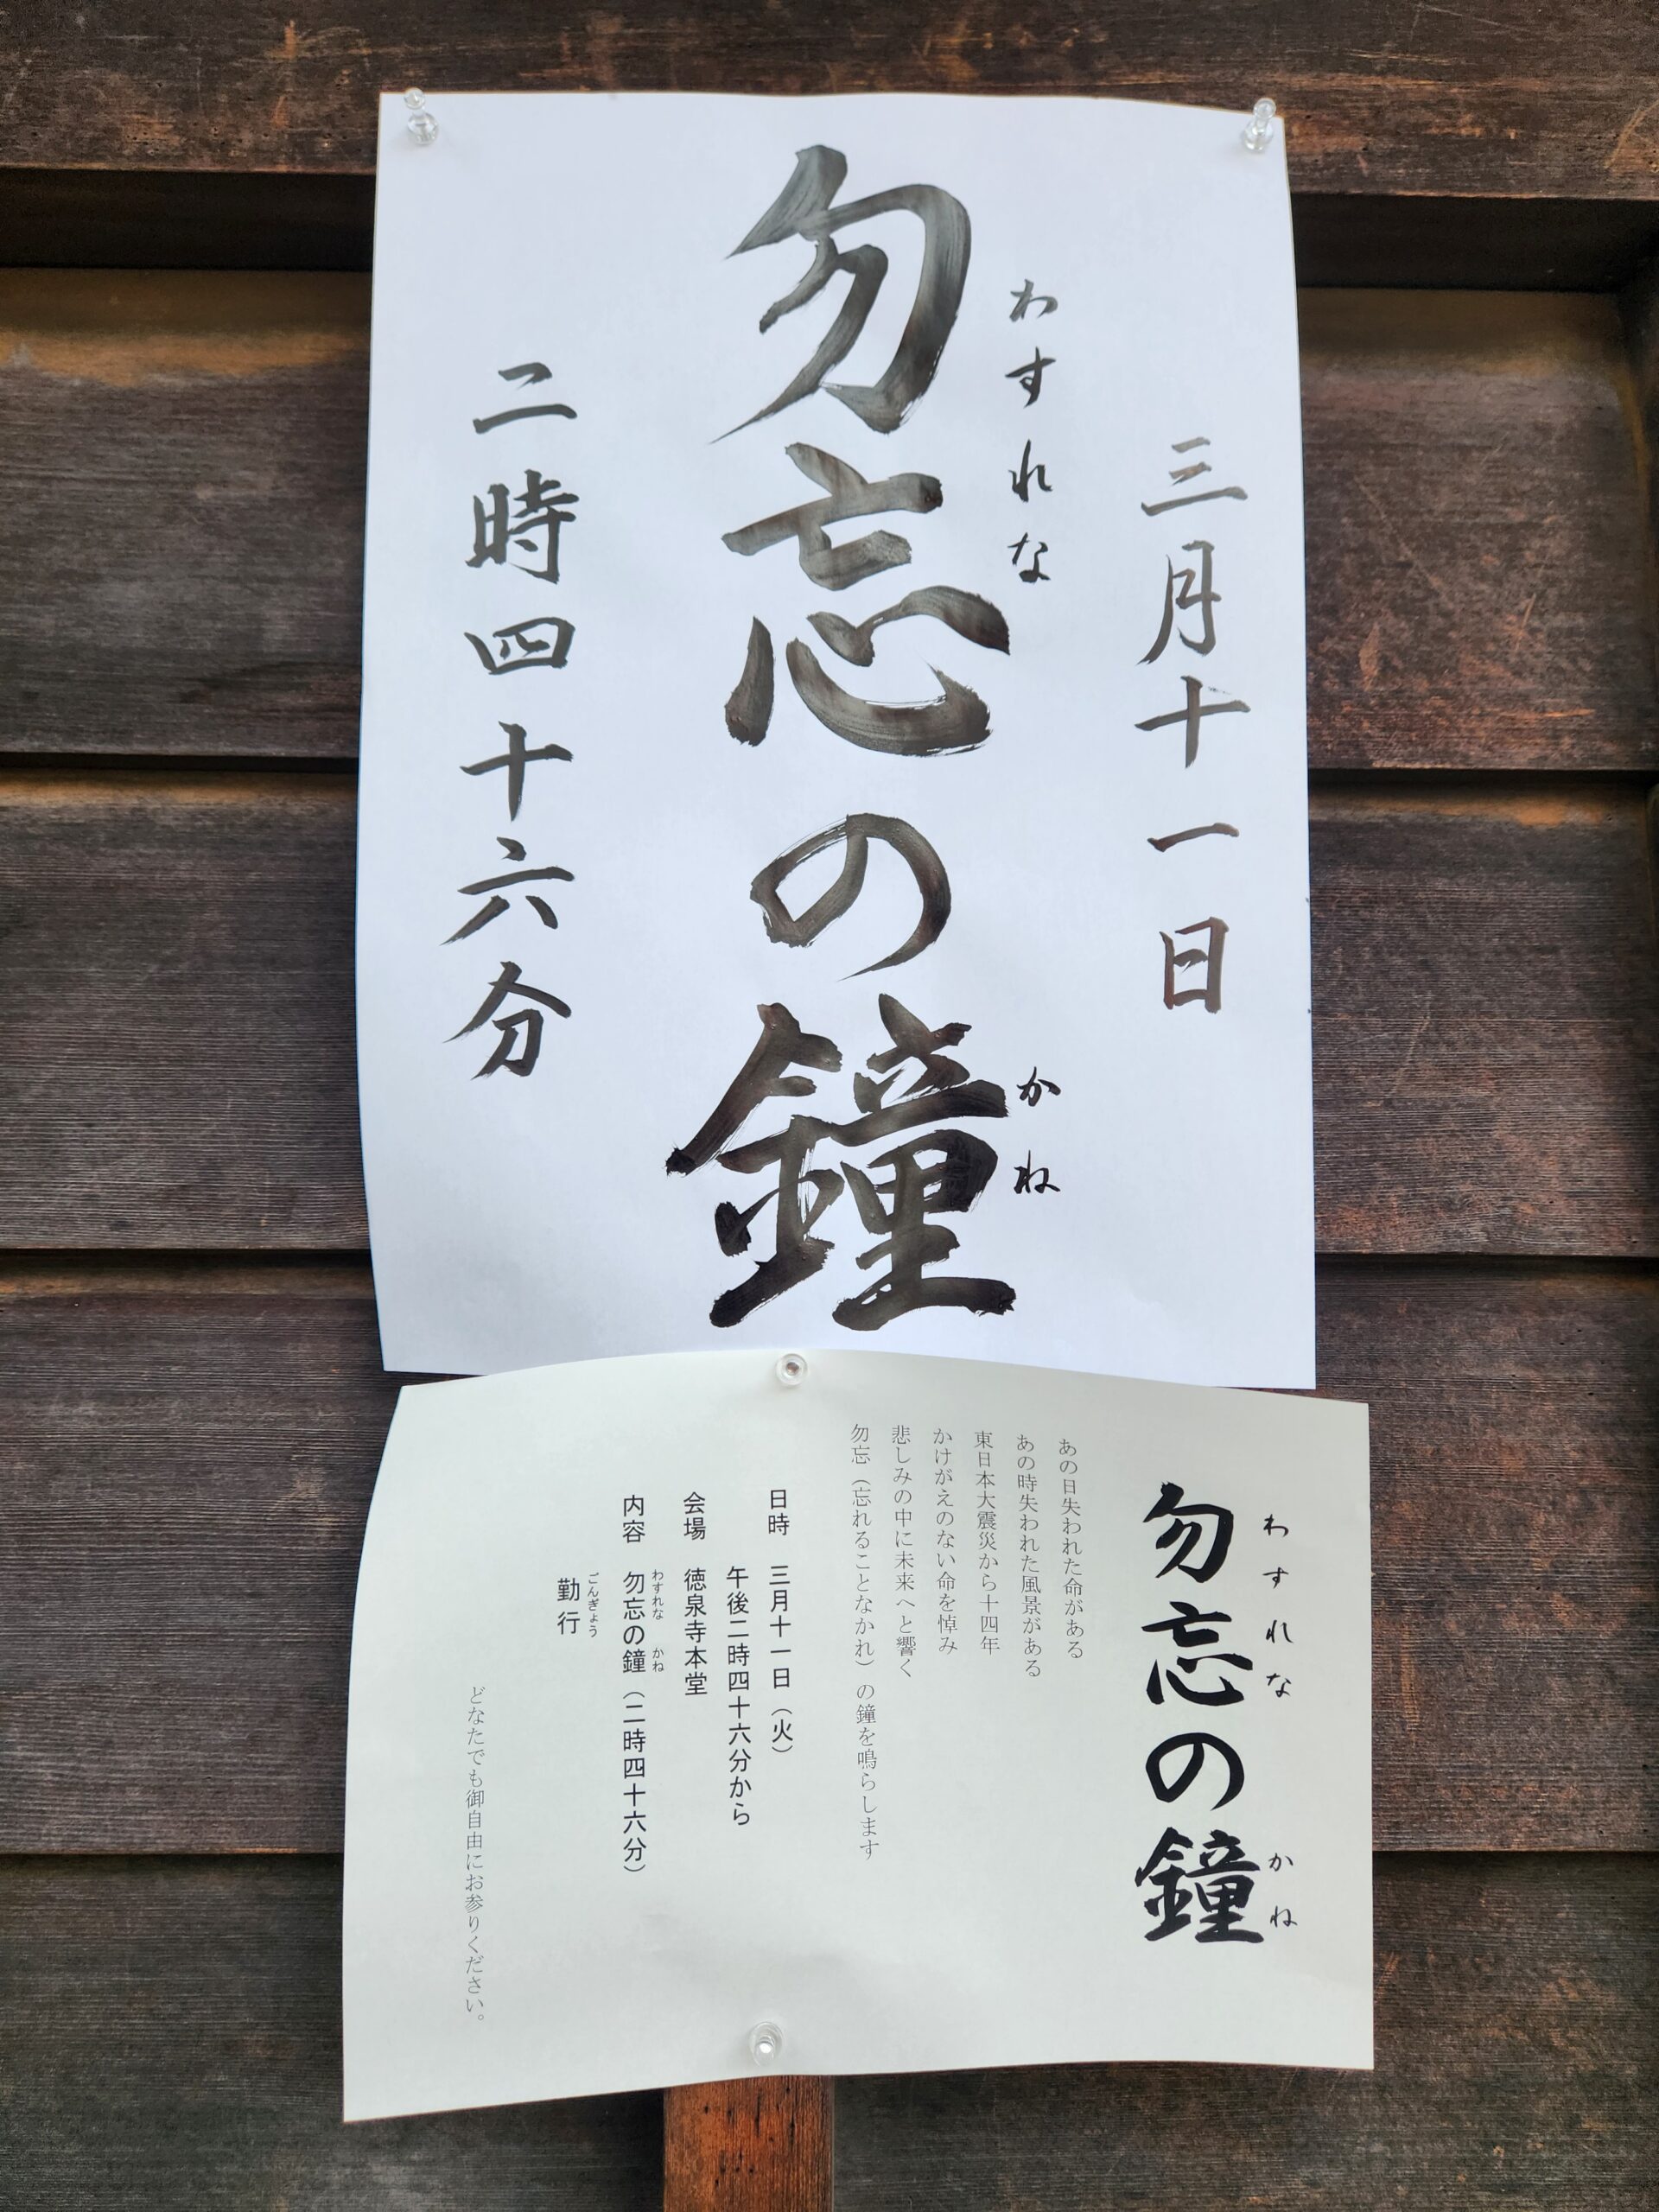 三月十一日
わすれな
かね
勿忘の鐘
二時四十六分
わすれな
かね
勿忘の鐘
あの日失われた命がある
あの時失われた風景がある
東日本大震災から十四年
かけがえのない命を悼み
悲しみの中に未来へと響く
勿忘（忘れることなかれ）の鐘を鳴らします
日時 三月十一日（火）
午後二時四十六分から
会場 徳泉寺本堂
わすれな かね
内容 勿忘の鐘（二時四十六分）
ごんぎょう
勤行
どなたでも御自由にお参りください。